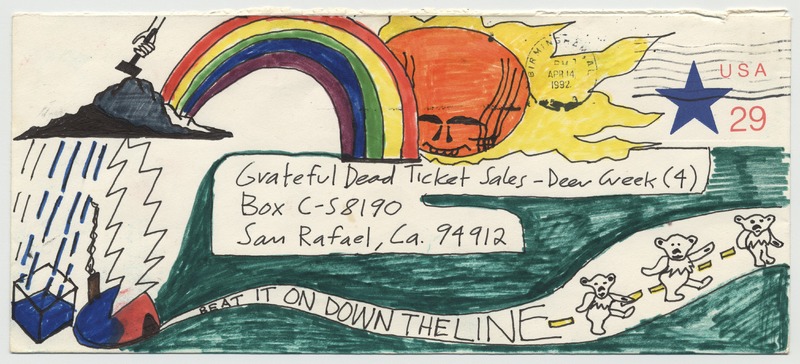 BIRMINGHAM, AL
PM
APR 14
1992
USA
29
Grateful Dead Ticket Sales - Deer Creek (4)
Box C-S8190
San Rafael, Ca. 94912
BEAT IT ON DOWN THE LINE